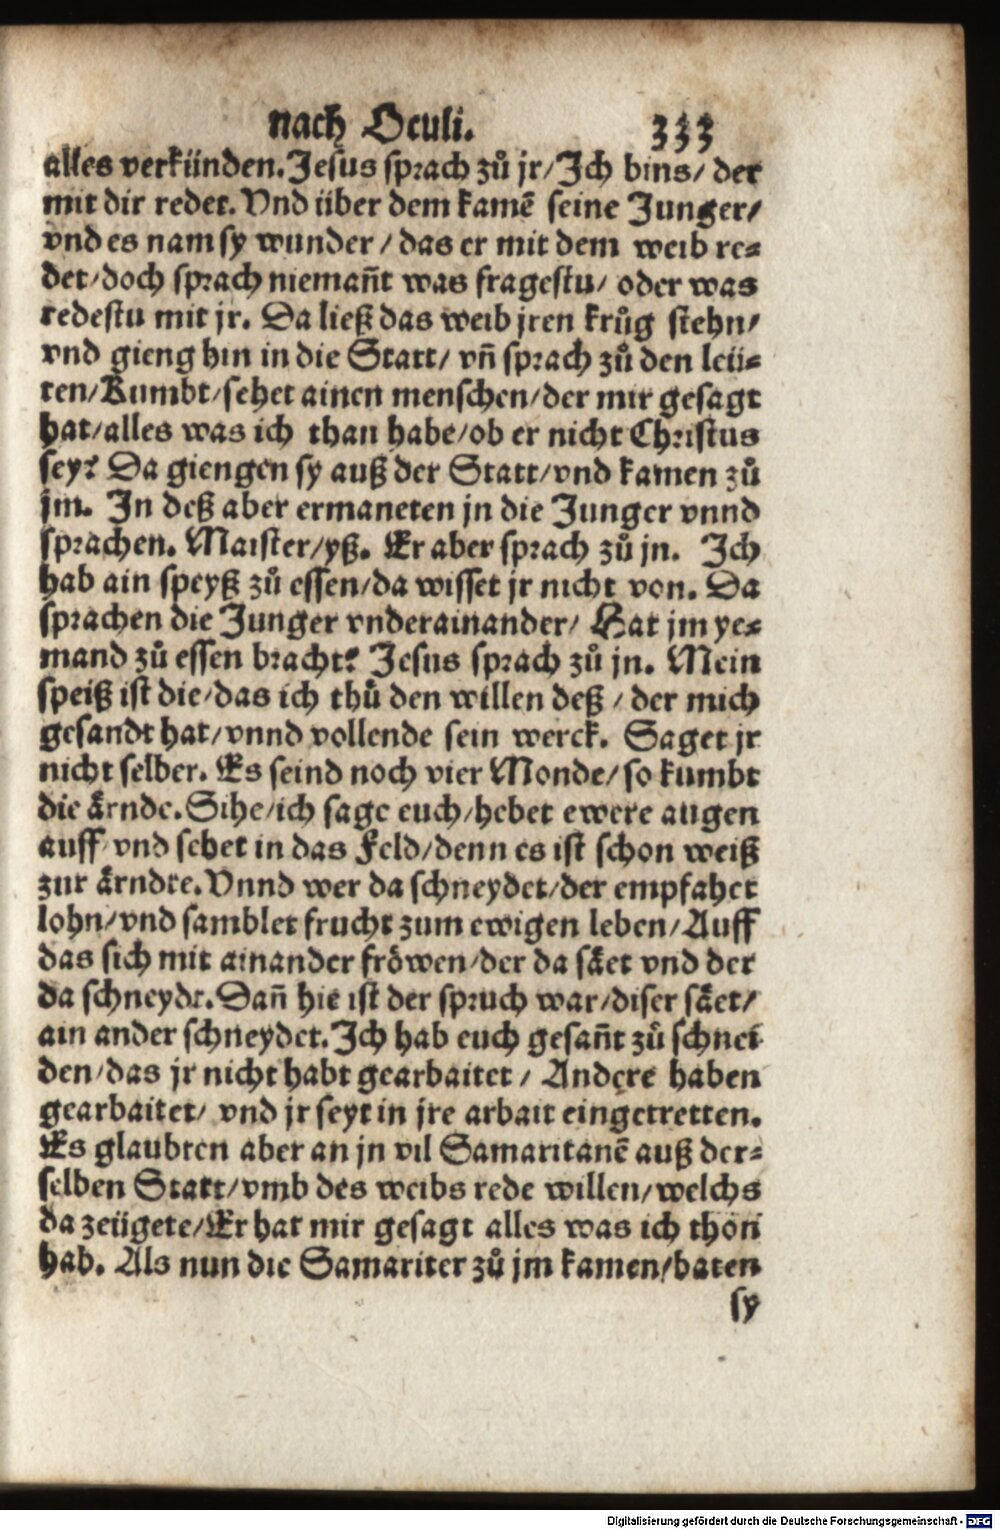 nach Oculi. 333
alles verkünden. Jesus sprach zů jr/ Ich bins/ der
mit dir redet. Vnd über dem kamē seine Junger/
vnd es nam sy wunder / das er mit dem weib re=
det/ doch sprach niemañt was fragestu/ oder was
redestu mit jr. Da ließ das weib jren krůg stehn/
vnd gieng hin in die Statt/ vñ sprach zů den leü=
ten/ Kumbt/ sehet ainen menschen/ der mir gesagt
hat/ alles was ich than habe/ ob er nicht Christus
sey? Da giengen sy auß der Statt/ vnd kamen zů
jm. In deß aber ermaneten jn die Junger vnnd
sprachen. Maister/ yß. Er aber sprach zů jn. Ich
hab ain speyß zů essen/ da wisset jr nicht von. Da
sprachen die Junger vnderainander/ Hat jm ye=
mand zů essen bracht? Jesus sprach zů jn. Mein
speiß ist die/ das ich thů den willen deß / der mich
gesandt hat/ vnnd vollende sein werck. Saget jr
nicht selber. Es seind noch vier Monde/ so kumbt
die ärnde. Sihe/ ich sage euch/ hebet ewere augen
auff/ vnd sehet in das Feld/ denn es ist schon weiß
zur ärndte. Vnnd wer da schneydet/ der empfahet
lohn/ vnd samblet frucht zum ewigen leben/ Auff
das sich mit ainander fröwen/ der da säet vnd der
da schneydt. Dañ hie ist der spruch war/ diser säet/
ain ander schneydet. Ich hab euch gesañt zů schnei
den/ das jr nicht habt gearbaitet / Andere haben
gearbaitet/ vnd jr seyt in jre arbait eingetretten.
Es glaubten aber an jn vil Samaritanē auß der=
selben Statt/ vmb des weibs rede willen/ welchs
da zeügete/ Er hat mir gesagt alles was ich thon
hab. Als nun die Samariter zů jm kamen/ baten
sy
Digitalisierung gefördert durch die Deutsche Forschungsgemeinschaft - DFG